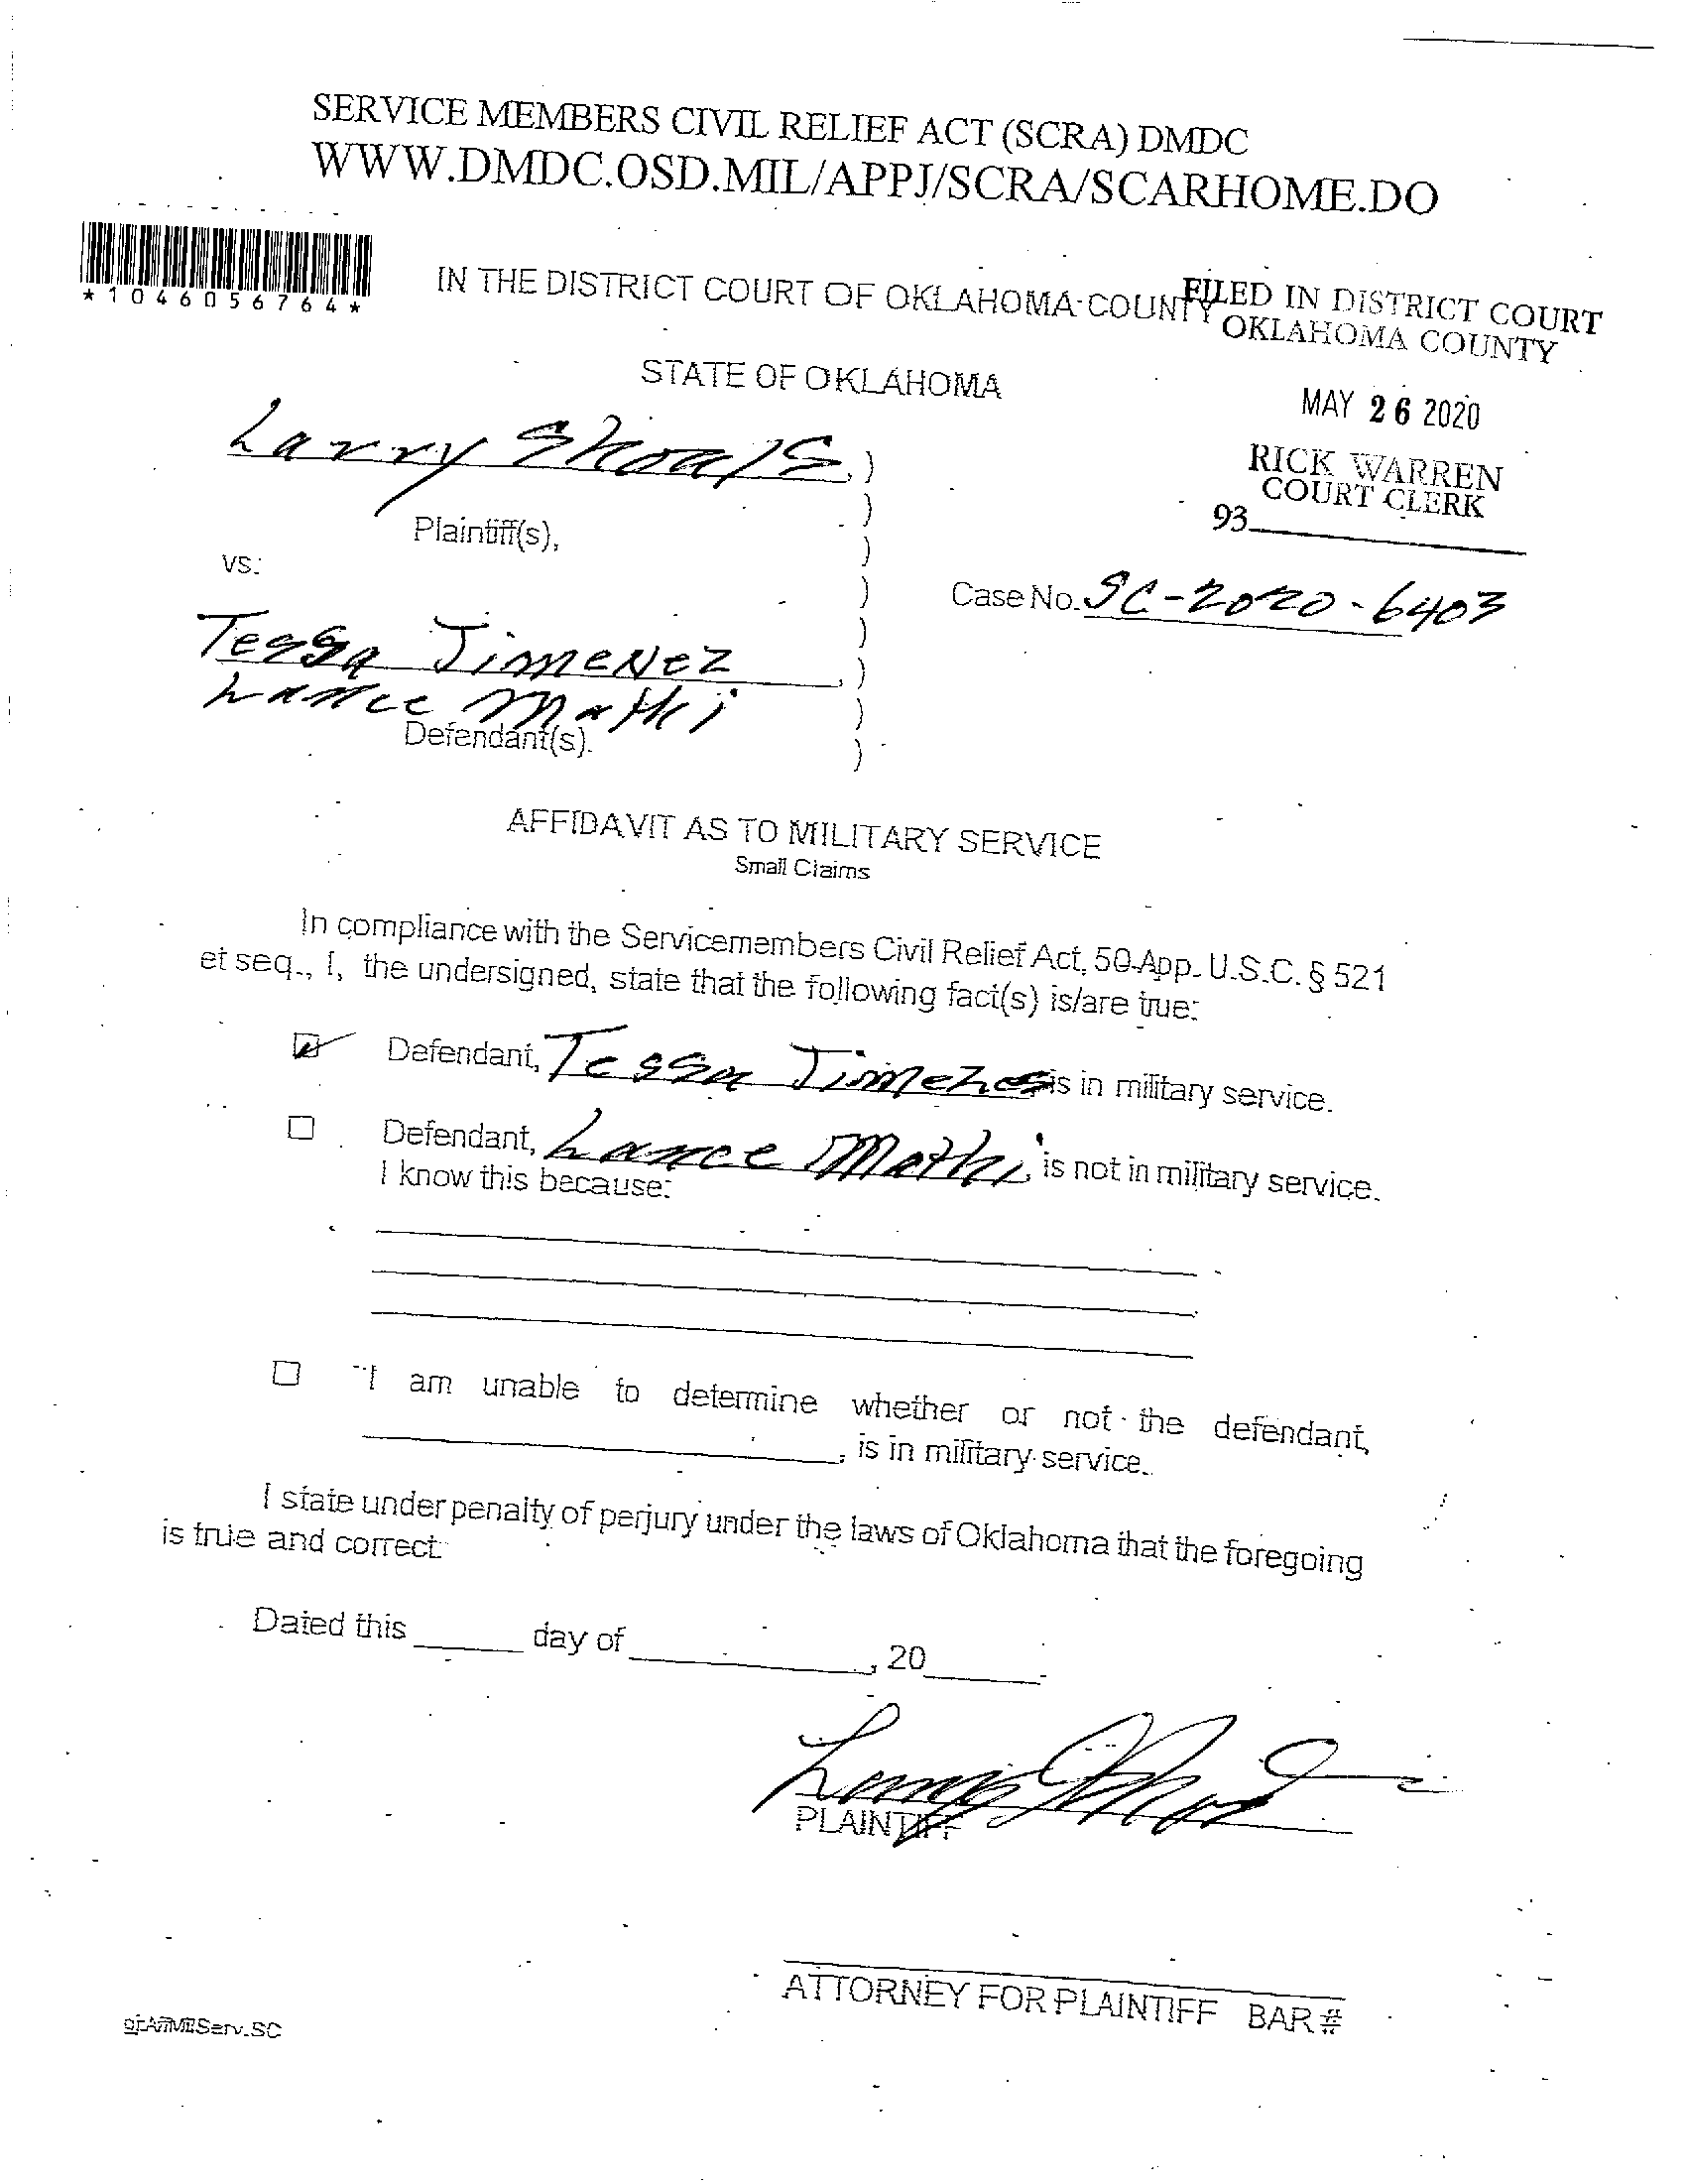 SERVICE MEMBERS CIVIL RELIEF ACT (SCRA) DMDC
WWW.DMDC.OSD.MIL/APPJ/SCRA/SCARHOME.DO
*1046056764*
IN THE DISTRICT COURT OF OKLAHOMA COUNTY
FILED IN DISTRICT COURT
OKLAHOMA COUNTY
STATE OF OKLAHOMA
MAY 26 2020
RICK WARREN
COURT CLERK
93
Larry Shoals, )
Plaintiff(s), )
vs. )
Case No. SC-2020-6403
Tessa Jimenez, )
Lance Mathi )
Defendant(s). )
AFFIDAVIT AS TO MILITARY SERVICE
Small Claims
In compliance with the Servicemembers Civil Relief Act, 50 App. U.S.C. § 521
et seq., I, the undersigned, state that the following fact(s) is/are true:
Defendant, Tessa Jimenez is in military service.
Defendant, Lance Mathi, is not in military service.
I know this because:
I am unable to determine whether or not the defendant,
, is in military service.
I state under penalty of perjury under the laws of Oklahoma that the foregoing
is true and correct.
Dated this ______ day of ______________, 20______.
PLAINTIFF
ATTORNEY FOR PLAINTIFF BAR #